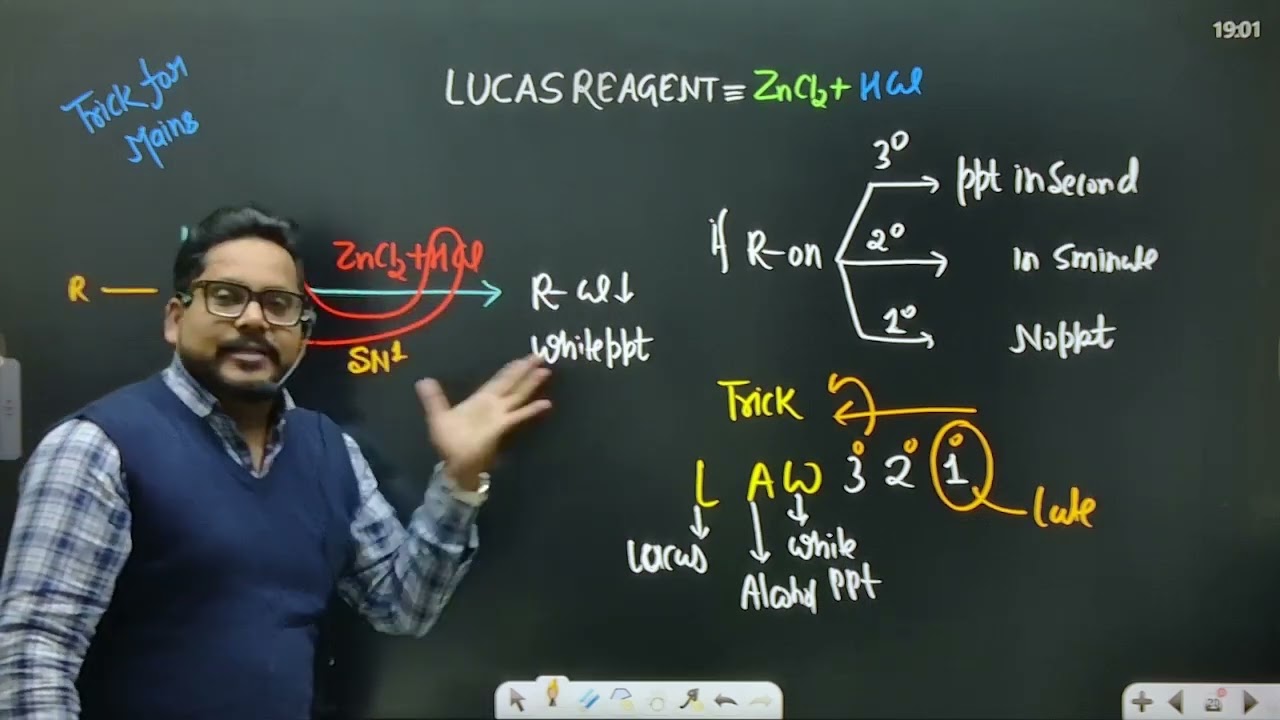 19:01
Trick for
Mains
LUCAS REAGENT ≡ ZnCl2 + HCl
R —
ZnCl2 + HCl
SN1
R-Cl↓
White ppt
if R-OH
3° → ppt in Second
2° → in 5 minute
1° → No ppt
Trick
L A W 3° 2° 1°
Late
Lucas
White
Alcohol ppt
20